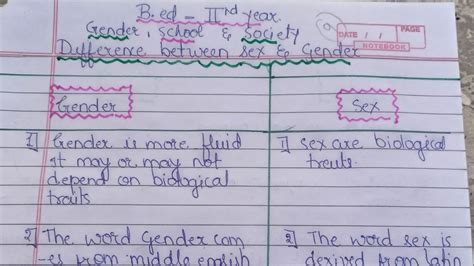 B.ed - IInd year.
Gender, school & Society
Difference between sex & Gender
DATE / /
PAGE
NOTEBOOK
Gender
Sex
1] Gender is more fluid
it may or may not
depend on biological
traits
1] Sex are biological
traits.
2] The word Gender com
-es from middle english
2] The word sex is
derived from latin